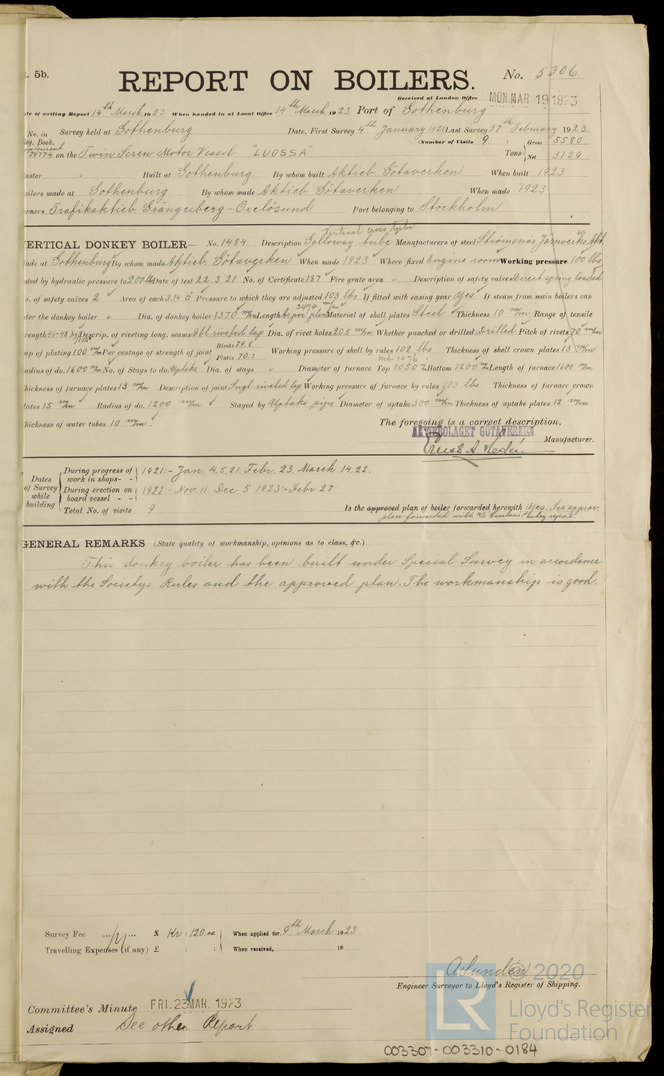 5b.
REPORT ON BOILERS.
No. 5306
Received at London Office MON. MAR 19 1923
te of writing Report 14th March 1923 When handed in at Local Office 14th March 1923 Port of Gothenburg
No. in Survey held at Gothenburg Date, First Survey 4th January 1921 Last Survey 27th February 1923
g. Book. (Number of Visits 9) Gross 5580
39774 on the Twin Screw Motor Vessel "LUOSSA" Tons Net 3129
aster Built at Gothenburg By whom built Aktieb. Götaverken When built 1923
oilers made at Gothenburg By whom made Aktieb. Götaverken When made 1923
wners Trafikaktieb. Grängesberg-Oxelösund Port belonging to Stockholm
Vertical cross tube
VERTICAL DONKEY BOILER— No. 1484 Description Galloway tube Manufacturers of steel Strömsnäs Jernverks Akt.
ade at Gothenburg By whom made Aktieb. Götaverken When made 1923 Where fixed Engine room Working pressure 100 lbs
ted by hydraulic pressure to 200 lbs Date of test 22.3.21 No. of Certificate 187 Fire grate area - Description of safety valves Direct spring loaded
o. of safety valves 2 Area of each 3.14 □" Pressure to which they are adjusted 103 lbs If fitted with easing gear Yes If steam from main boilers can
ter the donkey boiler " Dia. of donkey boiler 1370 m/m Length as per plan Material of shell plates Steel Thickness 10 m/m Range of tensile
rength Descrip. of riveting long. seams Dbl riveted lap Dia. of rivet holes 20.5 m/m Whether punched or drilled Drilled Pitch of rivets 70 m/m
ap of plating 100 m/m Per centage of strength of joint Rivets Plates 70.7 Working pressure of shell by rules 102 lbs Thickness of shell crown plates 13 m/m
adius of do. 1600 m/m No. of Stays to do. Uptake Dia. of stays " Diameter of furnace Top 1050 m/m Bottom 1200 m/m Length of furnace 1400 m/m
hickness of furnace plates 13 m/m Description of joint Singl riveted lap Working pressure of furnace by rules 103 lbs Thickness of furnace crown
lates 15 m/m Radius of do. 1200 m/m Stayed by Uptake pipe Diameter of uptake 300 m/m Thickness of uptake plates 12 m/m
hickness of water tubes 10 m/m.
The foregoing is a correct description,
AKTIEBOLAGET GÖTAVERKEN
Manufacturer.
Dates of Survey while building
During progress of work in shops - - 1921:- Jan. 4,5,21 Febr. 23 March 14,22.
During erection on board vessel - - - 1922:- Nov. 11 Dec 5 1923:- Febr 27
Total No. of visits 9
Is the approved plan of boiler forwarded herewith Yes. See approv.
GENERAL REMARKS (State quality of workmanship, opinions as to class, &c.)
This donkey boiler has been built under Special Survey in accordance
with the Societys Rules and the approved plan. The workmanship is good.
Survey Fee ... ... £ Kr: 120.00 When applied for, 9th March 1923
Travelling Expenses (if any) £ : : When received, 19
Engineer Surveyor to Lloyd's Register of Shipping.
Committee's Minute FRI. 23 MAR. 1923
Assigned See other Report
© 2020
LR
Lloyd's Register
Foundation
003307-003310-0184